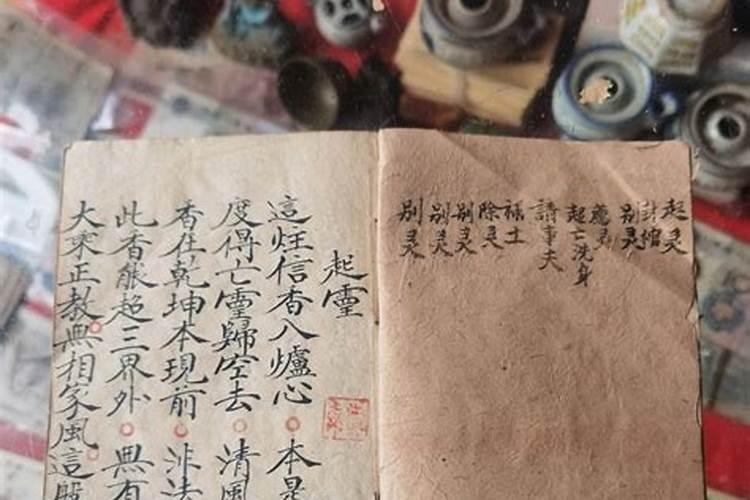 起灵
封棺
别灵
薦灵
起亡洗身
請事夫
禄土
除灵
别灵
别灵
别灵
起霊
這炷信香入爐心 本是
度得亡霊歸空去 清風
香在乾坤本現前 非法
此香能超三界外 無有
大乘正教無相家風這般